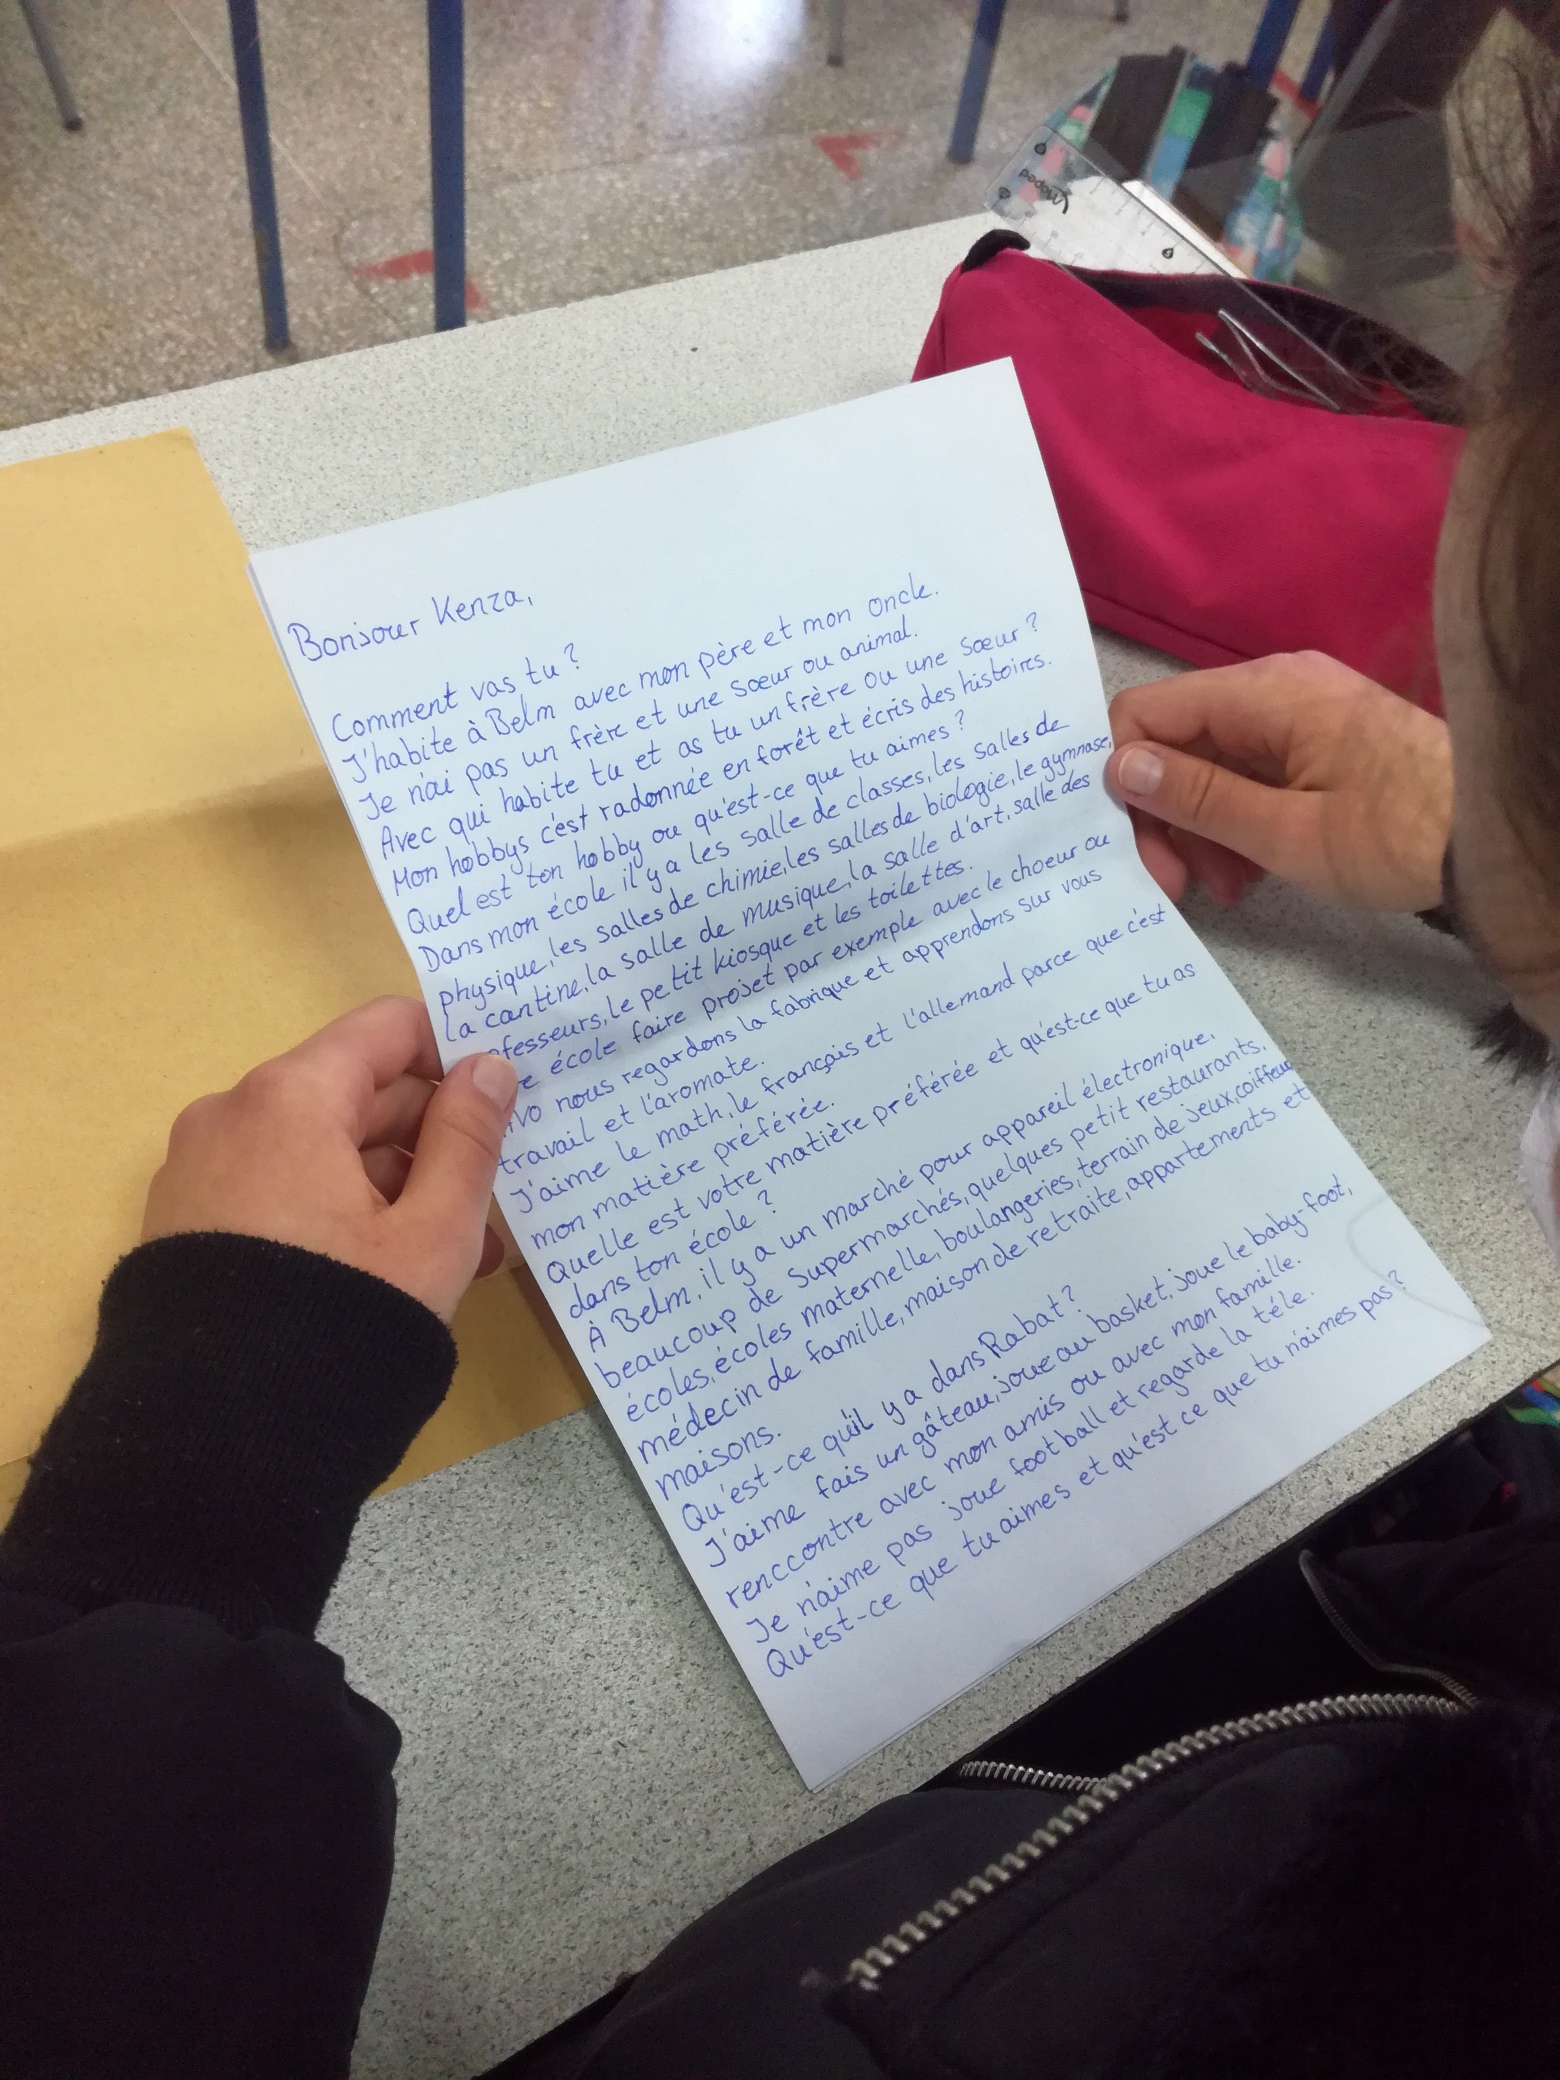 Bonjour Kenza,
Comment vas tu?
J'habite à Belm avec mon père et mon oncle.
Je n'ai pas un frère et une sœur ou animal.
Avec qui habite tu et as tu un frère ou une sœur?
Mon hobbys c'est radonnée en forêt et écris des histoires.
Quel est ton hobby ou qu'est-ce que tu aimes?
Dans mon école il y a les salle de classes, les salles de
physique, les salles de chimie, les salles de biologie, le gymnase,
la cantine, la salle de musique, la salle d'art, salle des
ofesseurs, le petit kiosque et les toilettes.
re école faire projet par exemple avec le choeur ou
nous regardons la fabrique et apprendons sur vous
travail et l'aromate.
J'aime le math, le français et l'allemand parce que c'est
mon matière préférée.
Quelle est votre matière préférée et qu'est-ce que tu as
dans ton école?
À Belm, il y a un marché pour appareil électronique,
beaucoup de supermarchés, quelques petit restaurants,
écoles, écoles maternelle, boulangeries, terrain de jeux, coiffeur
médecin de famille, maison de retraite, appartements et
maisons.
Qu'est-ce qu'il y a dans Rabat?
J'aime fais un gâteau, joue au basket, joue le baby-foot,
renccontre avec mon amis ou avec mon famille.
Je n'aime pas joue football et regarde la téle.
Qu'est-ce que tu aimes et qu'est ce que tu n'aimes pas?
Maped